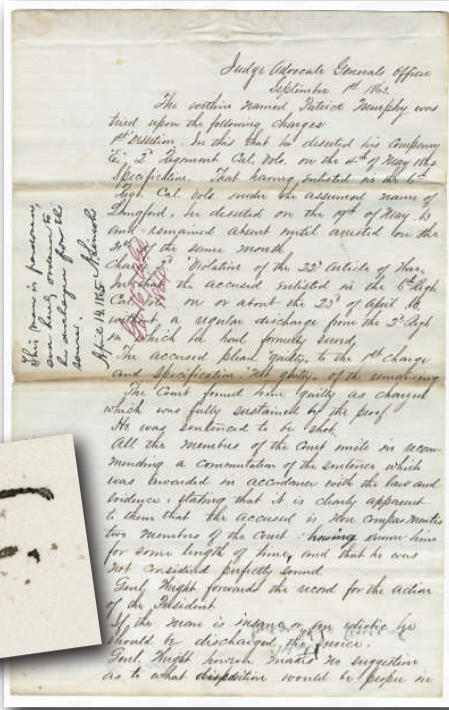 Judge Advocate Generals Office
September 1st 1863.
The within named Patrick Murphy was
tried upon the following charges
1st Desertion. In this that he deserted his Company
"E", 2d Regiment Cal. Vols. on the 4th of May 1863
Specification. That having enlisted in the 6th
Regt. Cal. Vols. under the assumed name of
Langford, he deserted on the of May 63
and remained absent until arrested on the
the same month
Violation of the 22d Article of War.
the accused enlisted in the 6th Regt
Cal on or about the 23d of April 63
a regular discharge from the 2d Regt
in which he had formerly served,
The accused plead "guilty" to the 1st Charge
and specification, "not guilty" of the remaining
The Court found him guilty as charged
which was fully sustained by the proof.
He was sentenced to be shot.
All the members of the Court unite in recom-
mending a commutation of the sentence which
was awarded in accordance with the law and
evidence, stating that it is clearly apparent
to them that the accused is Non Compas Mentes
two members of the court having known him
for some length of time, and that he was
not considered perfectly sound.
Genl. Wright forwards the record for the action
of the President
If the man is insane or an idiotic he
should be discharged the service.
Genl. Wright however makes no suggestion
as to what disposition would be proper in
This man is pardoned,
and hereby ordered to
be discharged from the
service.
April 14, 1865 A. Lincoln